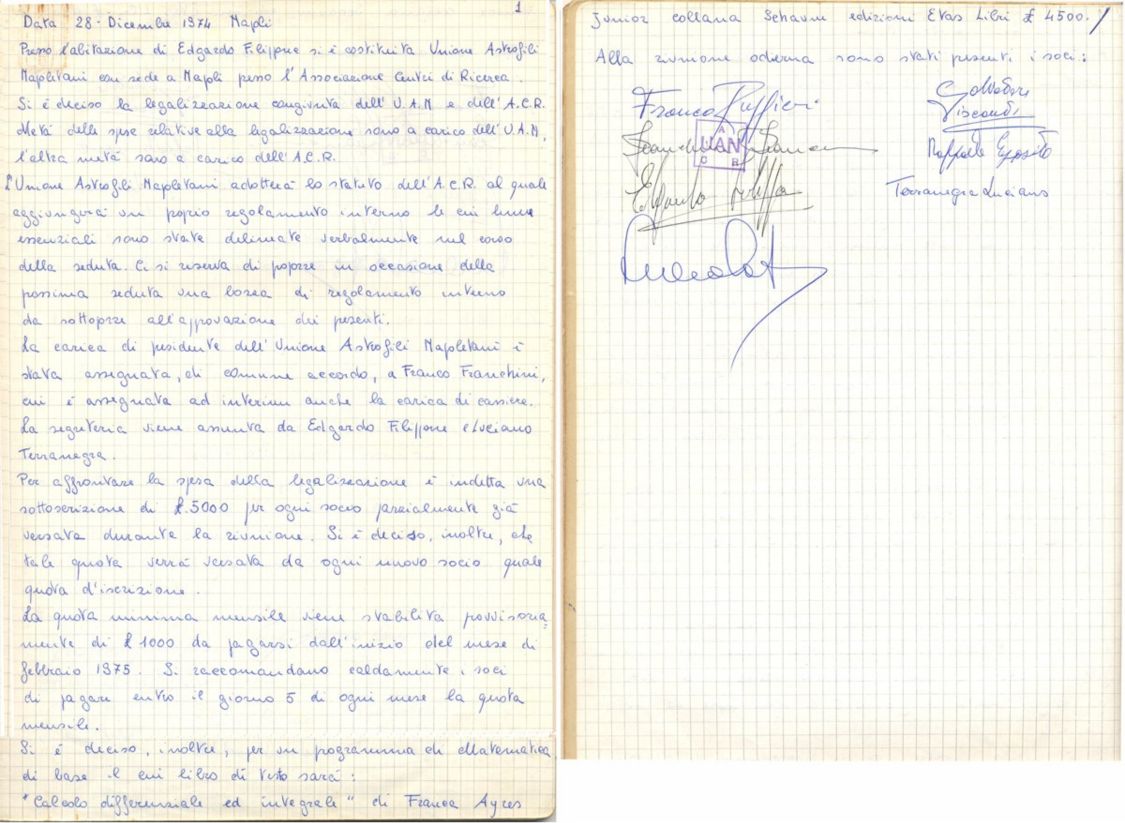 1
Data 28 - Dicembre 1974 Napoli
Presso l'abitazione di Edgardo Filippone si è costituita Unione Astrofili
Napoletani con sede a Napoli presso l'Associazione Centri di Ricerca.
Si è deciso la legalizzazione congiunta dell'U.A.N. e dell'A.C.R.
Metà delle spese relative alla legalizzazione sono a carico dell'U.A.N,
l'altra metà sarà a carico dell'A.C.R.
L'Unione Astrofili Napoletani adotterà lo statuto dell'A.C.R. al quale
aggiungerà un proprio regolamento interno le cui linee
essenziali sono state delineate verbalmente nel corso
della seduta. Ci si riserva di proporre in occasione della
prossima seduta una bozza di regolamento interno
da sottoporre all'approvazione dei presenti.
La carica di presidente dell'Unione Astrofili Napoletani è
stata assegnata, di comune accordo, a Franco Franchini,
cui è assegnata ad interim anche la carica di cassiere.
La segreteria viene assunta da Edgardo Filippone e Luciano
Terranegra.
Per affrontare la spesa della legalizzazione è indetta una
sottoscrizione di £.5000 per ogni socio parzialmente già
versata durante la riunione. Si è deciso, inoltre, che
tale quota verrà versata da ogni nuovo socio quale
quota d'iscrizione.
La quota minima mensile viene stabilita provvisoria=
mente di £ 1000 da pagarsi dall'inizio del mese di
febbraio 1975. Si raccomandano caldamente i soci
di pagare entro il giorno 5 di ogni mese la quota
mensile.
Si è deciso, inoltre, per un programma di Matematica
di base il cui libro di testo sarà:
"Calcolo differenziale ed integrale" di Franca Ayres
Junior collana Schaum edizioni Etas Libri £ 4500./
Alla riunione odierna sono stati presenti i soci:
Franco Ruffieri
A
UAN
C R
Edgardo Filippone
Salvatore
Visconti
Raffaele Esposito
Terranegra Luciano